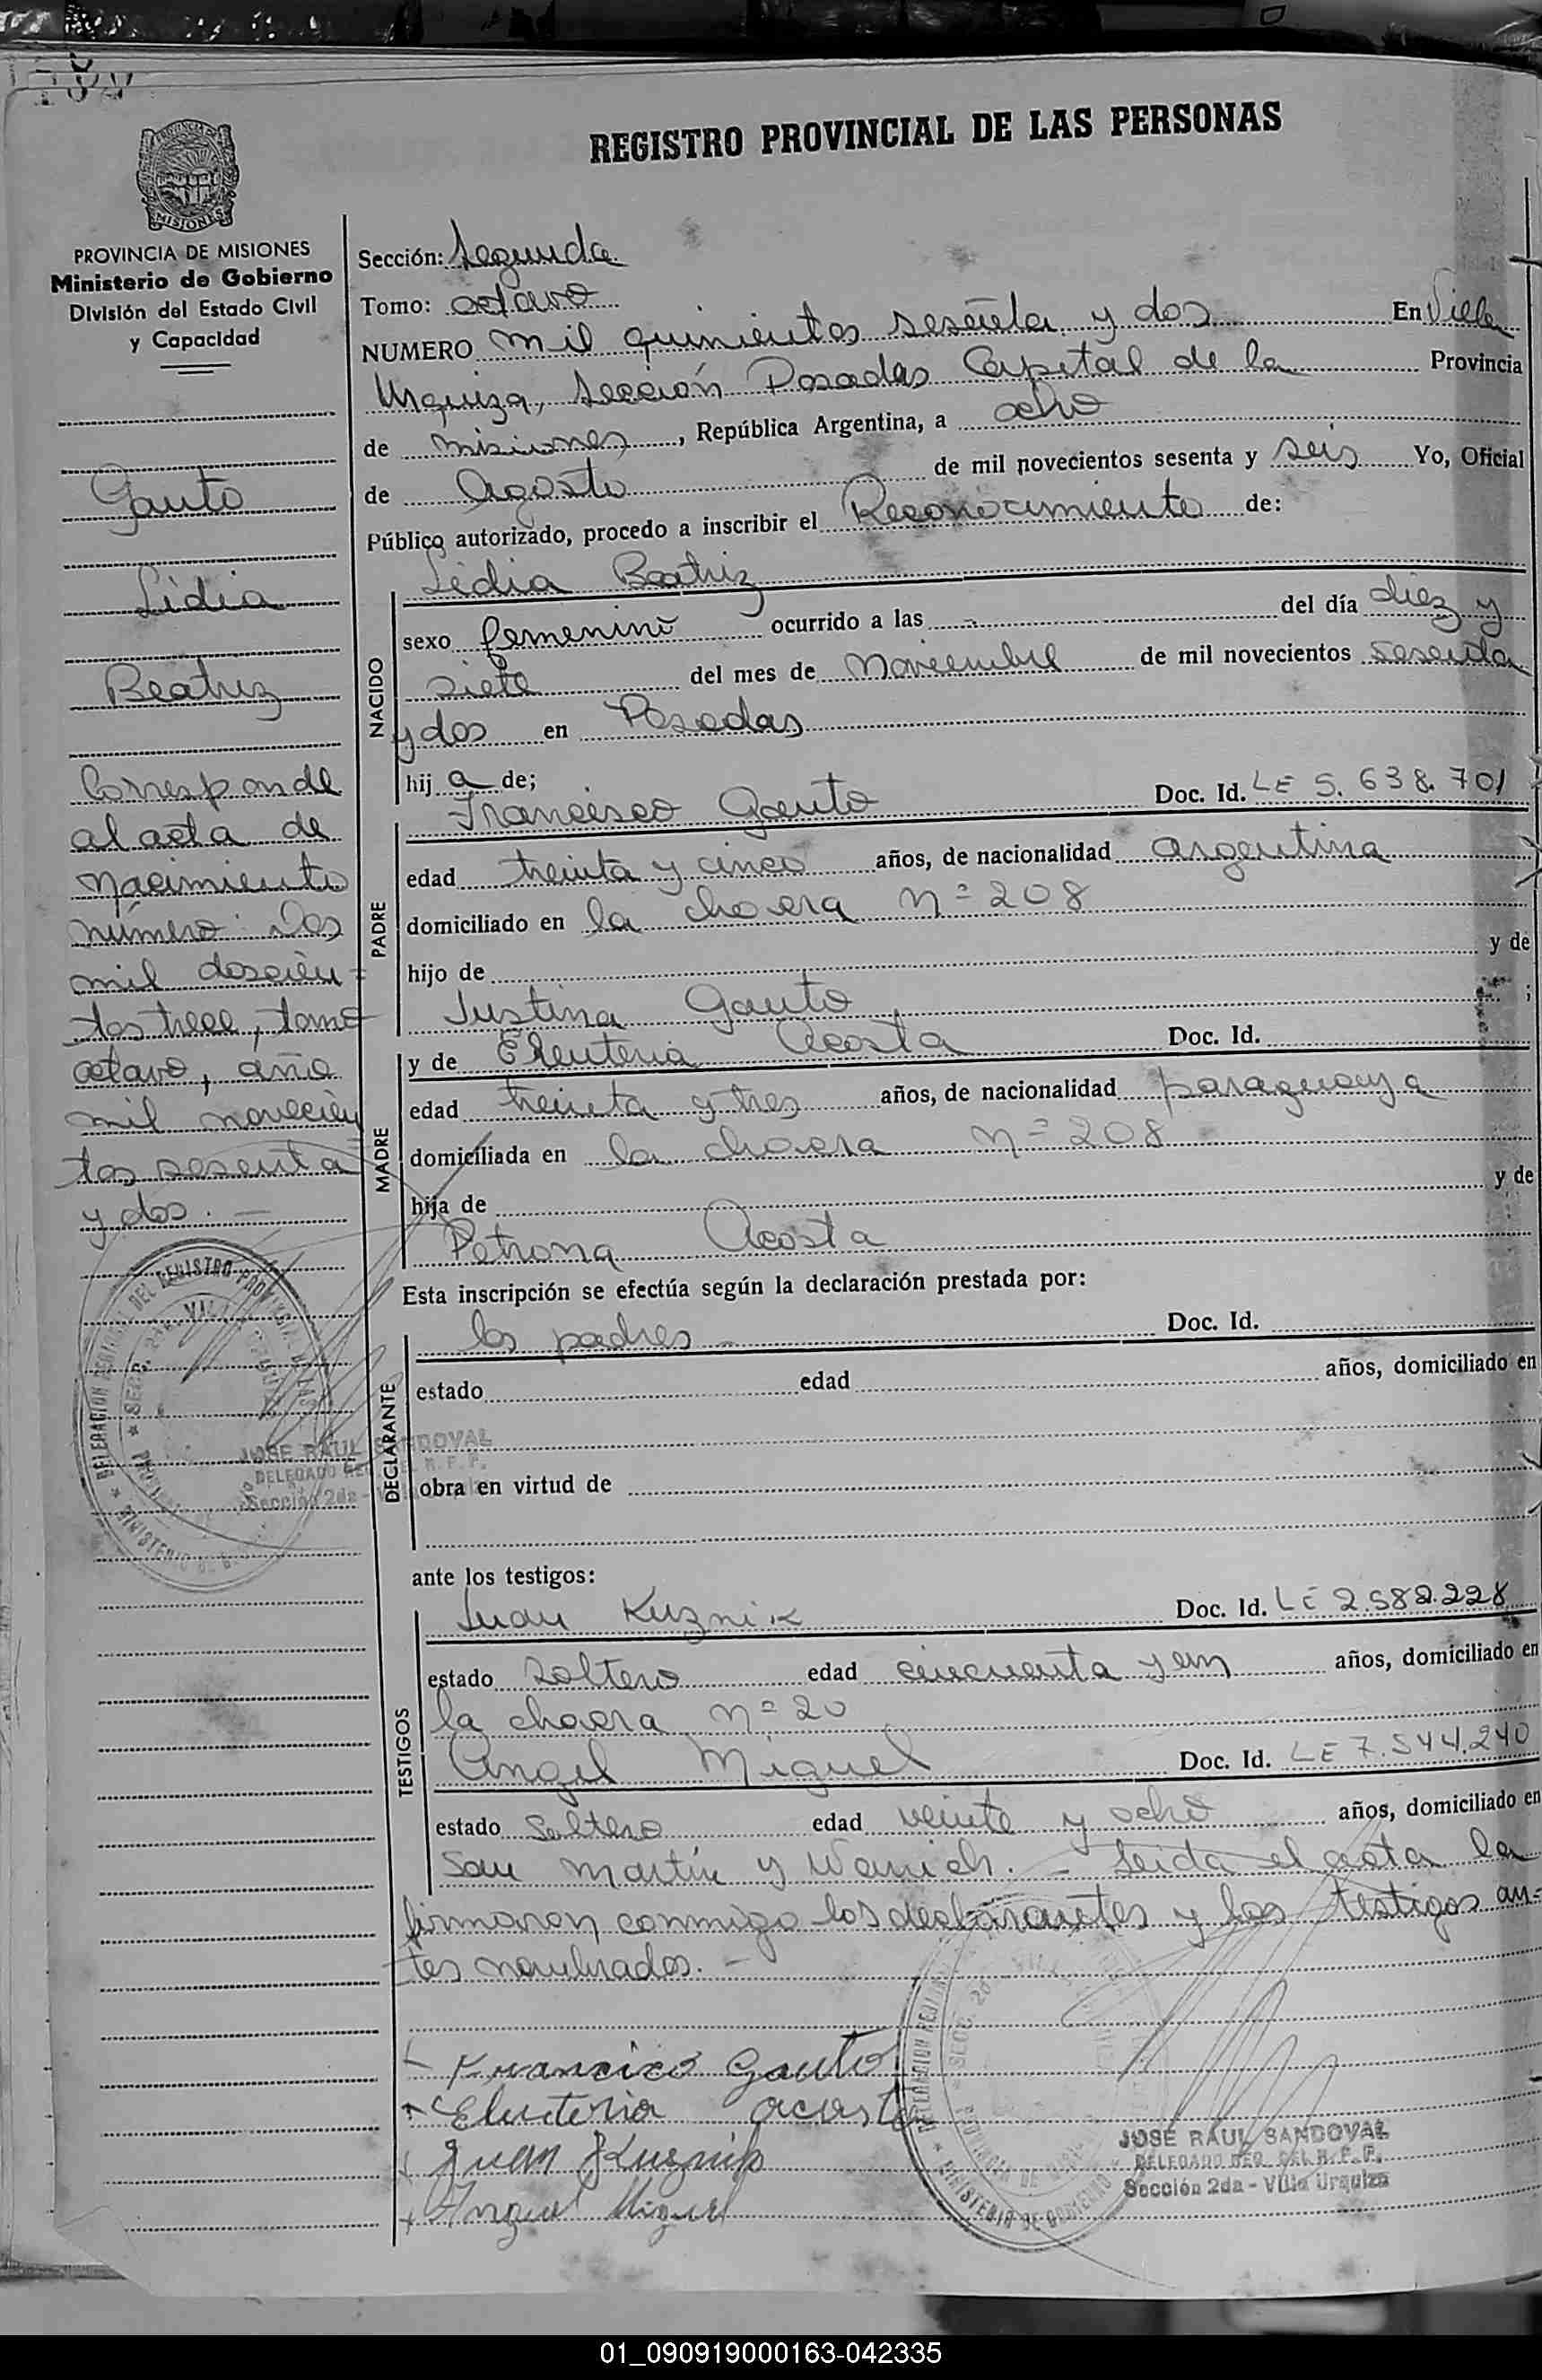 REGISTRO PROVINCIAL DE LAS PERSONAS
MISIONES
PROVINCIA DE MISIONES
Ministerio de Gobierno
División del Estado Civil
y Capacidad
Gauto
Lidia
Beatriz
Corresponde
al acta de
nacimiento
número: Dos
mil doscien=
tos trece, tomo
octavo, año
mil novecien
tos sesenta
y dos. —
JOSE RAUL SANDOVAL
DELEGADO REG. DEL R. P. P.
Sección 2da -
Sección: Segunda
Tomo: octavo
NUMERO mil quinientos sesenta y dos En Villa
Urquiza, Sección Posadas Capital de la Provincia
de misiones, República Argentina, a ocho
de Agosto de mil novecientos sesenta y seis Yo, Oficial
Público autorizado, procedo a inscribir el Reconocimiento de:
NACIDO
Lidia Beatriz
sexo femenino ocurrido a las - del día diez y
siete del mes de noviembre de mil novecientos sesenta
y dos en Posadas
hij a de;
PADRE
Francisco Gauto Doc. Id. LE 5.638.701
edad treinta y cinco años, de nacionalidad argentina
domiciliado en la chacra nº 208
hijo de y de
Justina Gauto ;
MADRE
y de Eleuteria Acosta Doc. Id.
edad treinta y tres años, de nacionalidad paraguaya
domiciliada en la chacra nº 208
hija de y de
Petrona Acosta
Esta inscripción se efectúa según la declaración prestada por:
DECLARANTE
los padres - Doc. Id.
estado edad años, domiciliado en
obra en virtud de
ante los testigos:
TESTIGOS
Juan Kuznik Doc. Id. LE 2.582.228
estado soltero edad cincuenta y un años, domiciliado en
la chacra nº 20
Angel Miguel Doc. Id. LE 7.544.240
estado soltero edad veinte y ocho años, domiciliado en
San Martín y Wanich. - Leida el acta la
firmaron conmigo los declarantes y los testigos an=
tes nombrados. -
Francico Gauto
Eluteria acosta
Juan Kuznik
Angel Miguel
JOSE RAUL SANDOVAL
DELEGADO REG. DEL R. P. P.
Sección 2da - Villa Urquiza
01_090919000163-042335